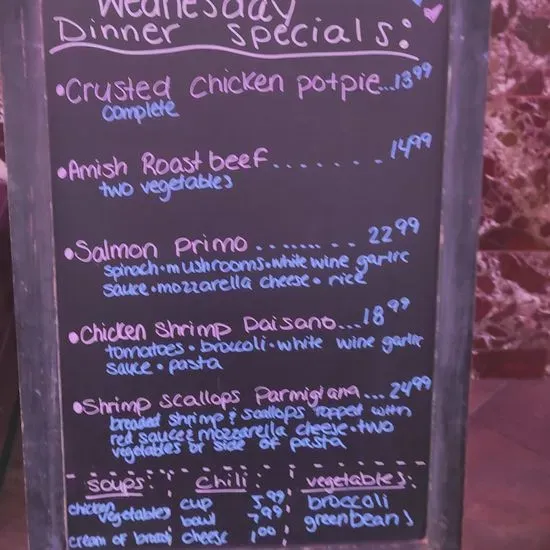 Wednesday
Dinner Specials:
•Crusted Chicken potpie...13⁹⁹
complete
•Amish Roast beef.......14⁹⁹
two vegetables
•Salmon Primo........22⁹⁹
spinach•mushrooms•white wine garlic
sauce•mozzarella cheese•rice
•Chicken Shrimp Paisano...18⁹⁹
tomatoes•broccoli•white wine garlic
sauce•pasta
•Shrimp scallops Parmigiana...24⁹⁹
breaded shrimp & scallops topped with
red sauce & mozzarella cheese•two
vegetables or side of pasta
soups:
chicken vegetables
cream of broccoli
chili:
cup 5.99
bowl 7.99
cheese 1.00
vegetables:
broccoli
greenbeans